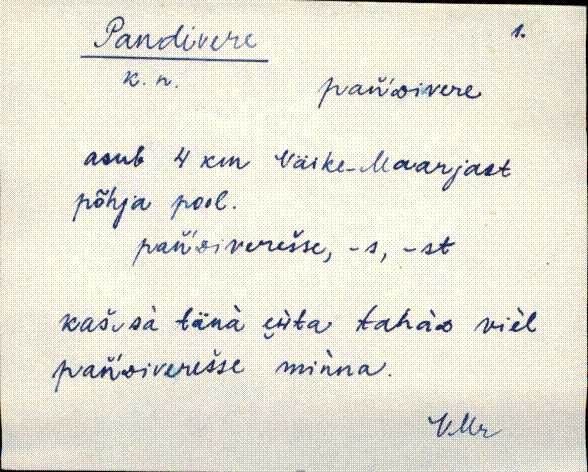 Pandivere
1.
k. n.
pań'ᴅivere
asub 4 km Väike-Maarjast
põhja pool.
pań'ᴅiverešse, -s, -st
kaš‿sà tänà ɛìta tahàᴅ vièl
pań'ᴅiverešse mìnna.
VMr